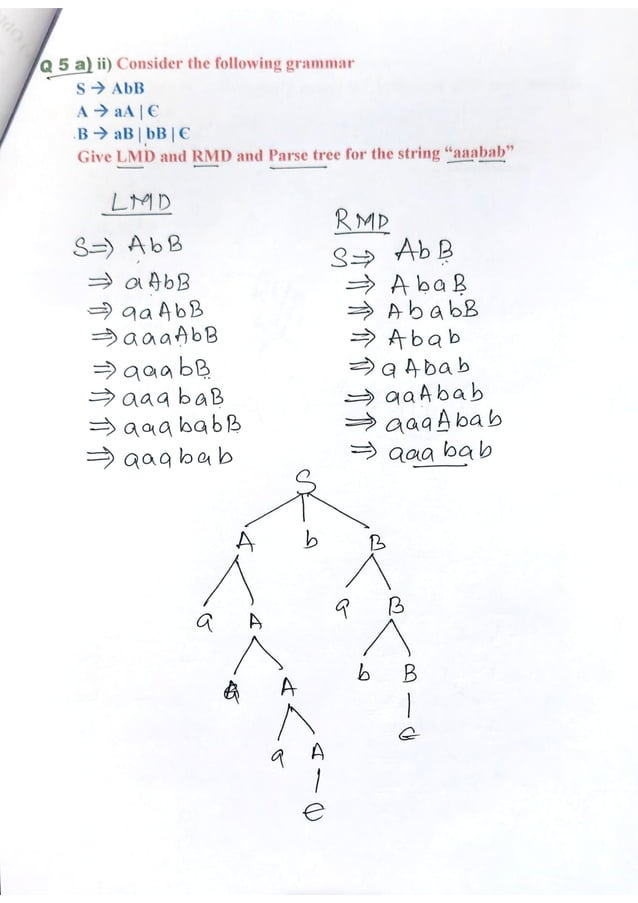 Q 5 a) ii) Consider the following grammar
S → AbB
A → aA | Є
B → aB | bB | Є
Give LMD and RMD and Parse tree for the string “aaabab”
LMD
S⇒ AbB
⇒ aAbB
⇒ aaAbB
⇒ aaaAbB
⇒ aaabB
⇒ aaabaB
⇒ aaababB
⇒ aaabab
RMD
S⇒ AbB
⇒ AbaB
⇒ AbabB
⇒ Abab
⇒ aAbab
⇒ aaAbab
⇒ aaaAbab
⇒ aaabab
S
A b B
a A a B
a A b B
a A Є
Є